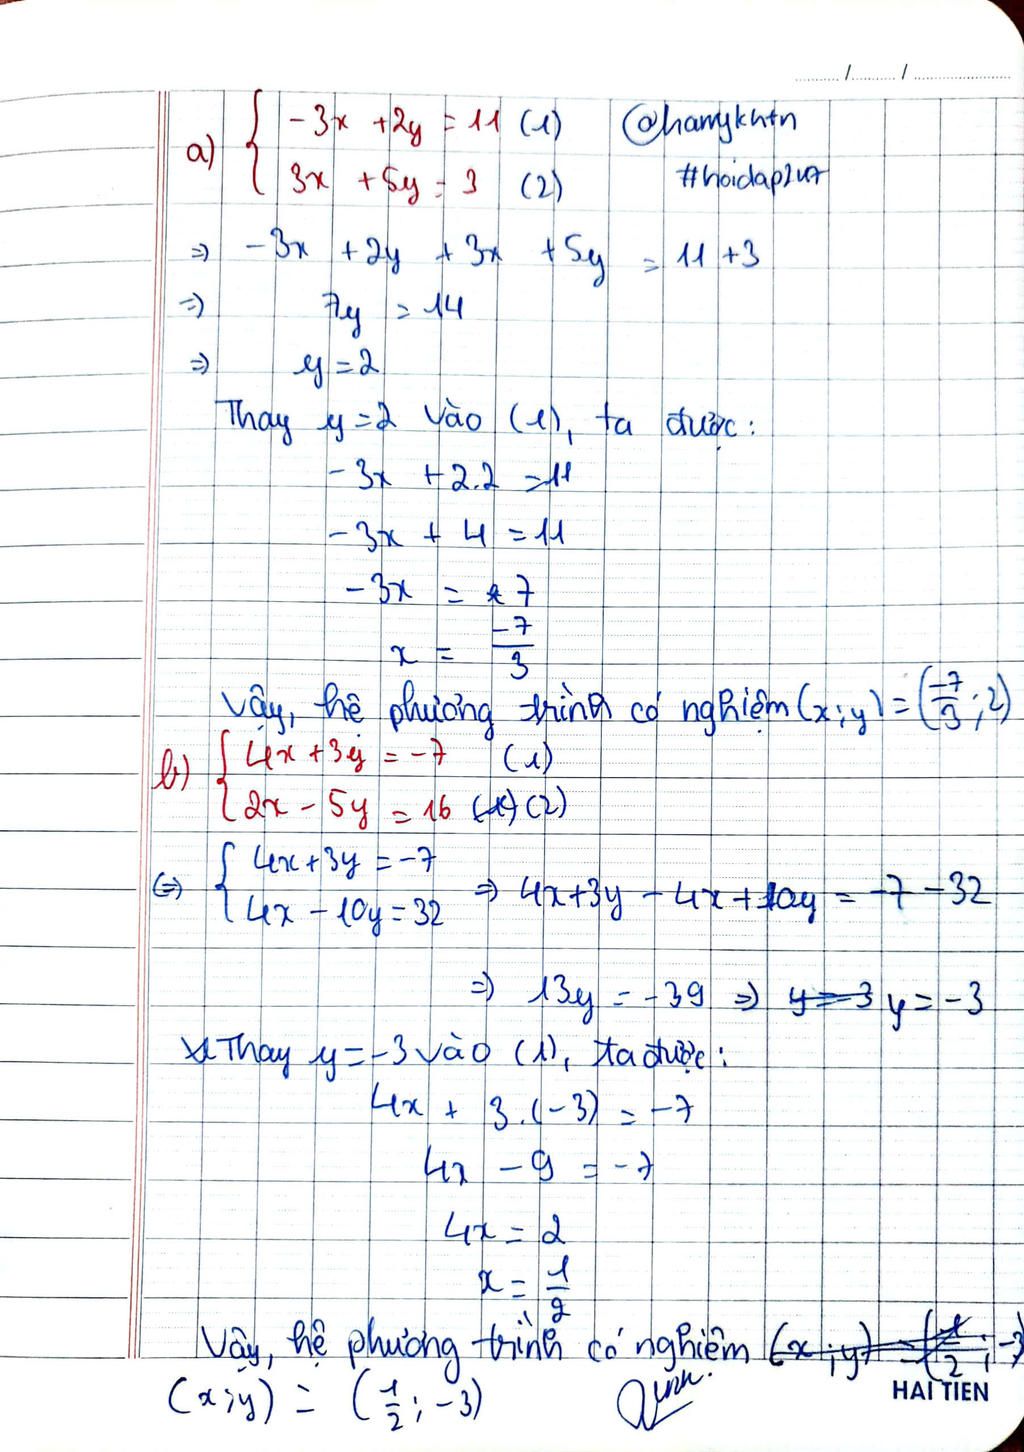 a) { -3x + 2y = 11 (1) @hamykhtn
3x + 5y = 3 (2) #hoidap247
=> -3x + 2y + 3x + 5y = 11 + 3
=> 7y = 14
=> y = 2
Thay y = 2 vào (1), ta được:
-3x + 2.2 = 11
-3x + 4 = 11
-3x = 7
x = -7/3
Vậy, hệ phương trình có nghiệm (x;y) = (-7/3; 2)
b) { 4x + 3y = -7 (1)
2x - 5y = 16 (2)
<=> { 4x + 3y = -7
4x - 10y = 32 => 4x + 3y - 4x + 10y = -7 - 32
=> 13y = -39 => y = 3 y = -3
Thay y = -3 vào (1), ta được:
4x + 3.(-3) = -7
4x - 9 = -7
4x = 2
x = 1/2
Vậy, hệ phương trình có nghiệm (x;y) = (1/2; -3)
(x;y) = (1/2; -3)
HAI TIEN